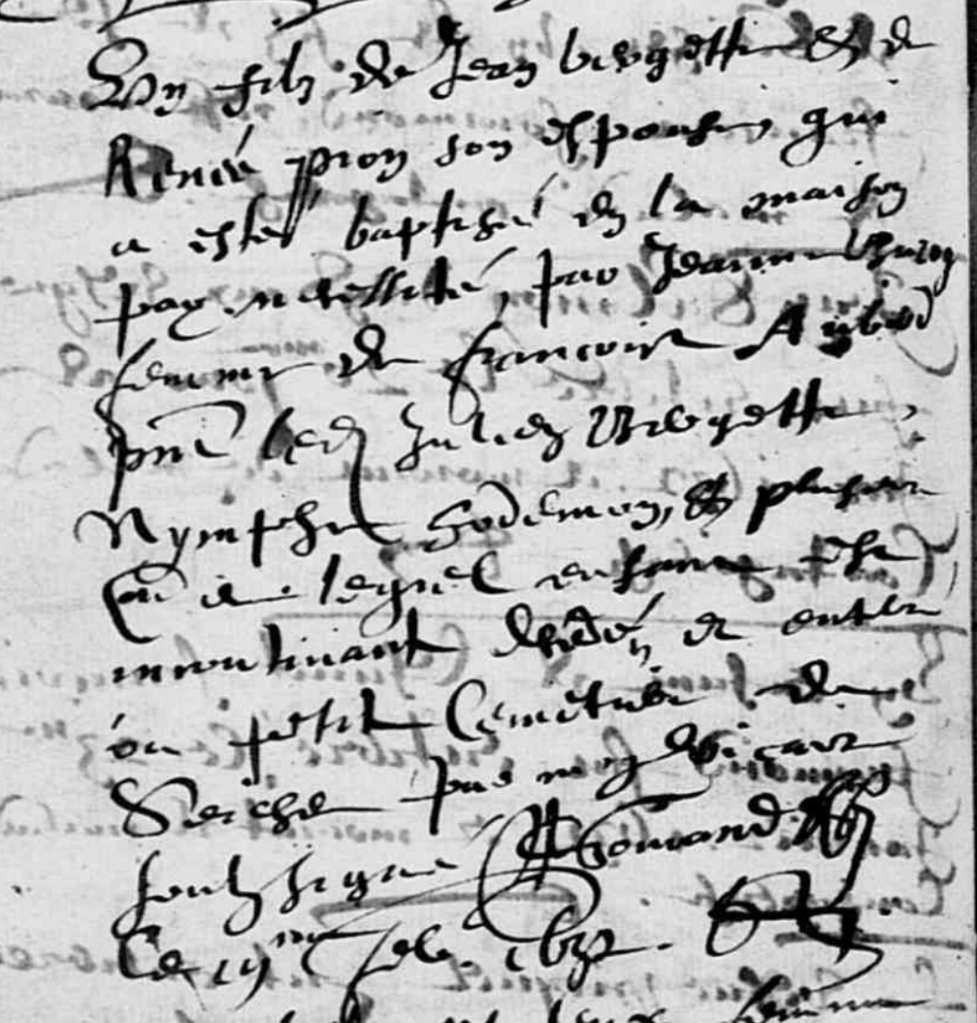 Un filz de Jean Vergette & de
Renée pion son espouse qui
a esté baptisé en la maison
par necessité, par Jeanne
femme de francois Aubert
pnt led Julien Vergette,
Nymphe Godemon, & plusieurs
lequel enfant est
incontinant decedé, et enterré
ou petit Cemetiere de
Seiche par moy vicaire
soubsigné
Le 19me feb.